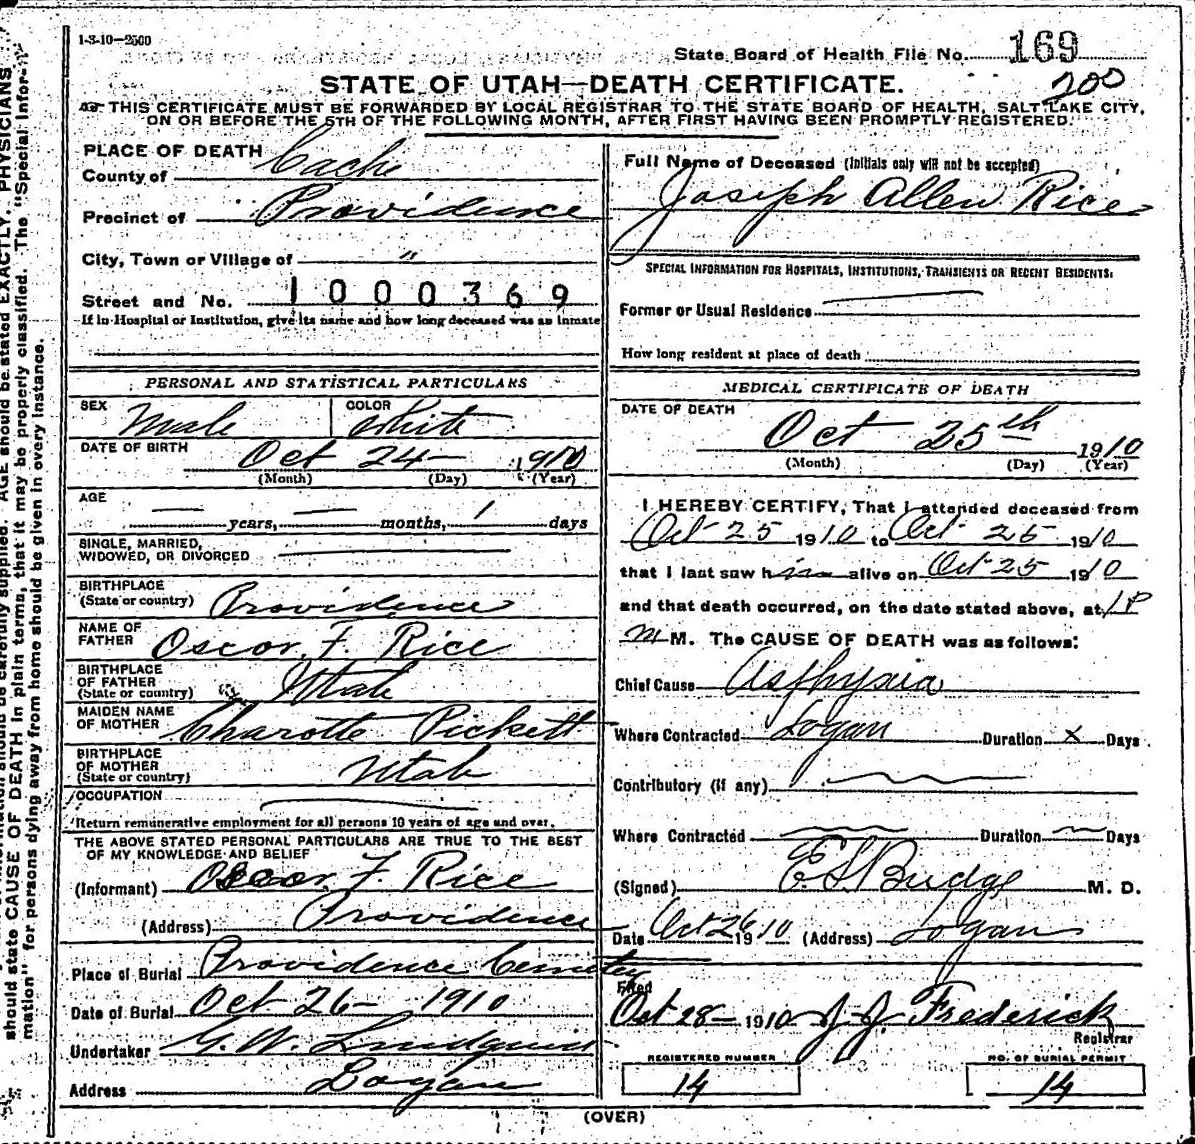 1-3-10—2500
State Board of Health File No. 169
200
STATE OF UTAH—DEATH CERTIFICATE.
THIS CERTIFICATE MUST BE FORWARDED BY LOCAL REGISTRAR TO THE STATE BOARD OF HEALTH, SALT LAKE CITY,
ON OR BEFORE THE 5TH OF THE FOLLOWING MONTH, AFTER FIRST HAVING BEEN PROMPTLY REGISTERED.
PLACE OF DEATH
County of Cache
Precinct of Providence
City, Town or Village of "
Street and No. 1000369
If in Hospital or Institution, give its name and how long deceased was an inmate
Full Name of Deceased (Initials only will not be accepted)
Joseph Allen Rice
SPECIAL INFORMATION FOR HOSPITALS, INSTITUTIONS, TRANSIENTS OR RECENT RESIDENTS:
Former or Usual Residence
How long resident at place of death
PERSONAL AND STATISTICAL PARTICULARS
SEX Male COLOR White
DATE OF BIRTH Oct 24 1910
(Month) (Day) (Year)
AGE
— years, — months, 1 days
SINGLE, MARRIED,
WIDOWED, OR DIVORCED
BIRTHPLACE
(State or country) Providence
NAME OF
FATHER Oscor F. Rice
BIRTHPLACE
OF FATHER
(State or country) Utah
MAIDEN NAME
OF MOTHER Charotte Pickett
BIRTHPLACE
OF MOTHER
(State or country) Utah
OCCUPATION
Return remunerative employment for all persons 10 years of age and over.
THE ABOVE STATED PERSONAL PARTICULARS ARE TRUE TO THE BEST
OF MY KNOWLEDGE AND BELIEF
(Informant) Oscor F. Rice
(Address) Providence
Place of Burial Providence Cemetey
Date of Burial Oct 26 — 1910
Undertaker G. W. Lindquist
Address Logan
MEDICAL CERTIFICATE OF DEATH
DATE OF DEATH
Oct 25th 1910
(Month) (Day) (Year)
I HEREBY CERTIFY, That I attended deceased from
Oct 25 1910 to Oct 25 1910
that I last saw him alive on Oct 25 1910
and that death occurred, on the date stated above, at 1 P
m M. The CAUSE OF DEATH was as follows:
Chief Cause Asfhyxia
Where Contracted Logan Duration x Days
Contributory (if any)
Where Contracted Duration Days
(Signed) E S Budge M. D.
Date Oct 26 1910 (Address) Logan
Filed
Oct 28 — 1910 J. J. Frederick
Registrar
REGISTERED NUMBER
14
NO. OF BURIAL PERMIT
14
(OVER)
should state CAUSE OF DEATH in plain terms, that it may be properly classified. The "Special Infor-
mation" for persons dying away from home should be given in every instance.